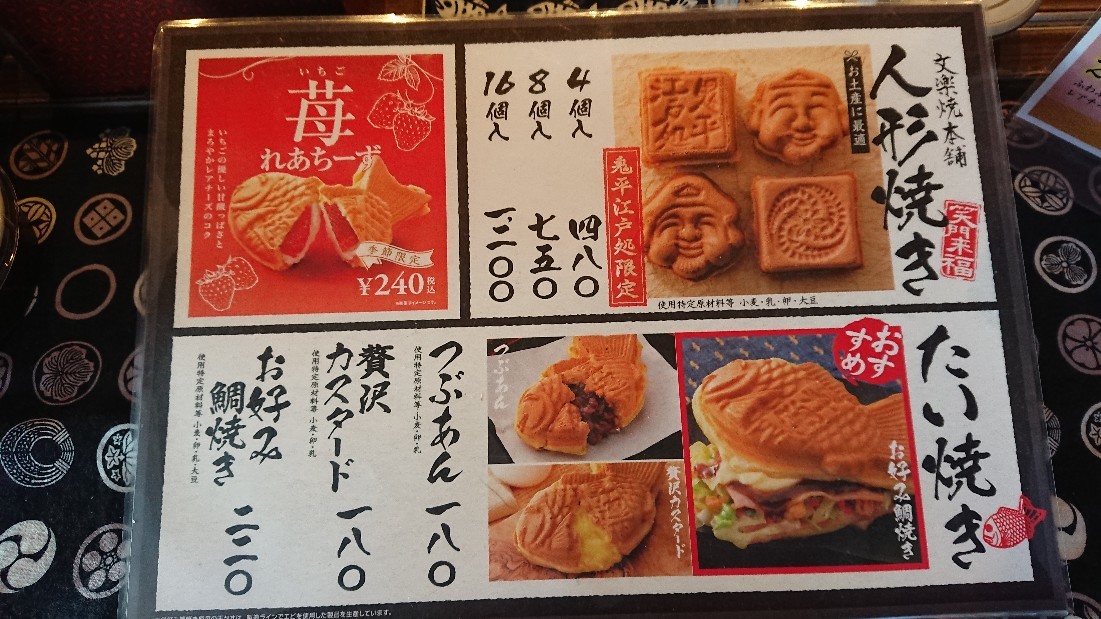 文楽焼本舗
人形焼き
笑門来福
お土産に最適
鬼平江戸処限定
4個入 四八〇
8個入 七五〇
16個入 一二〇〇
使用特定原材料等 小麦・乳・卵・大豆
いちご
苺
れあちーず
いちごの優しい甘酸っぱさと
まろやかレアチーズのコク
季節限定
¥240税込
たい焼き
おすすめ
お好み鯛焼き
つぶあん
贅沢カスタード
つぶあん 一八〇
使用特定原材料等 小麦・卵・乳
贅沢
カスタード 一八〇
使用特定原材料等 小麦・卵・乳
お好み
鯛焼き 二二〇
使用特定原材料等 小麦・卵・乳・大豆
製造ラインでエビを使用した製品を生産しています。